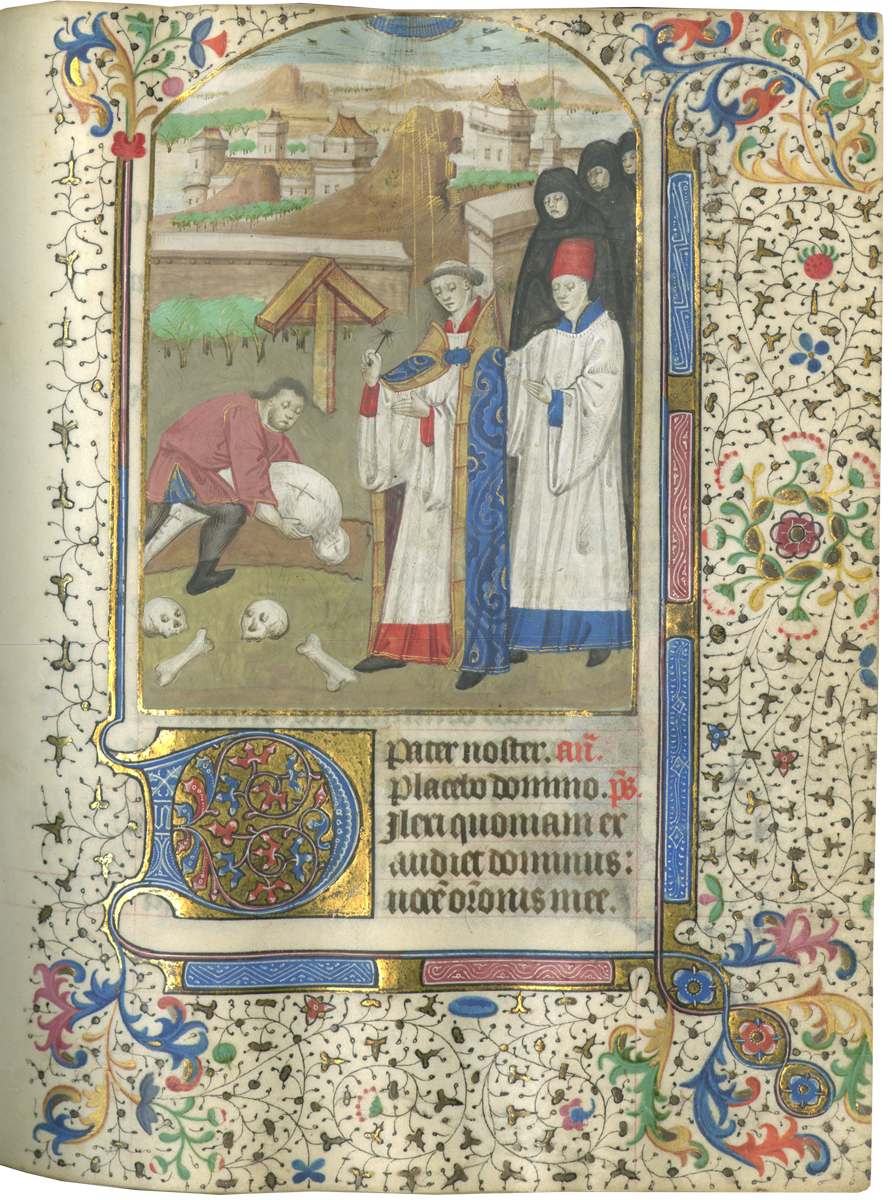 Pater noster. an̄.
Placebo domino. ps̄.
Dilexi quoniam ex
audiet dominus:
uocē or̄onis mee.